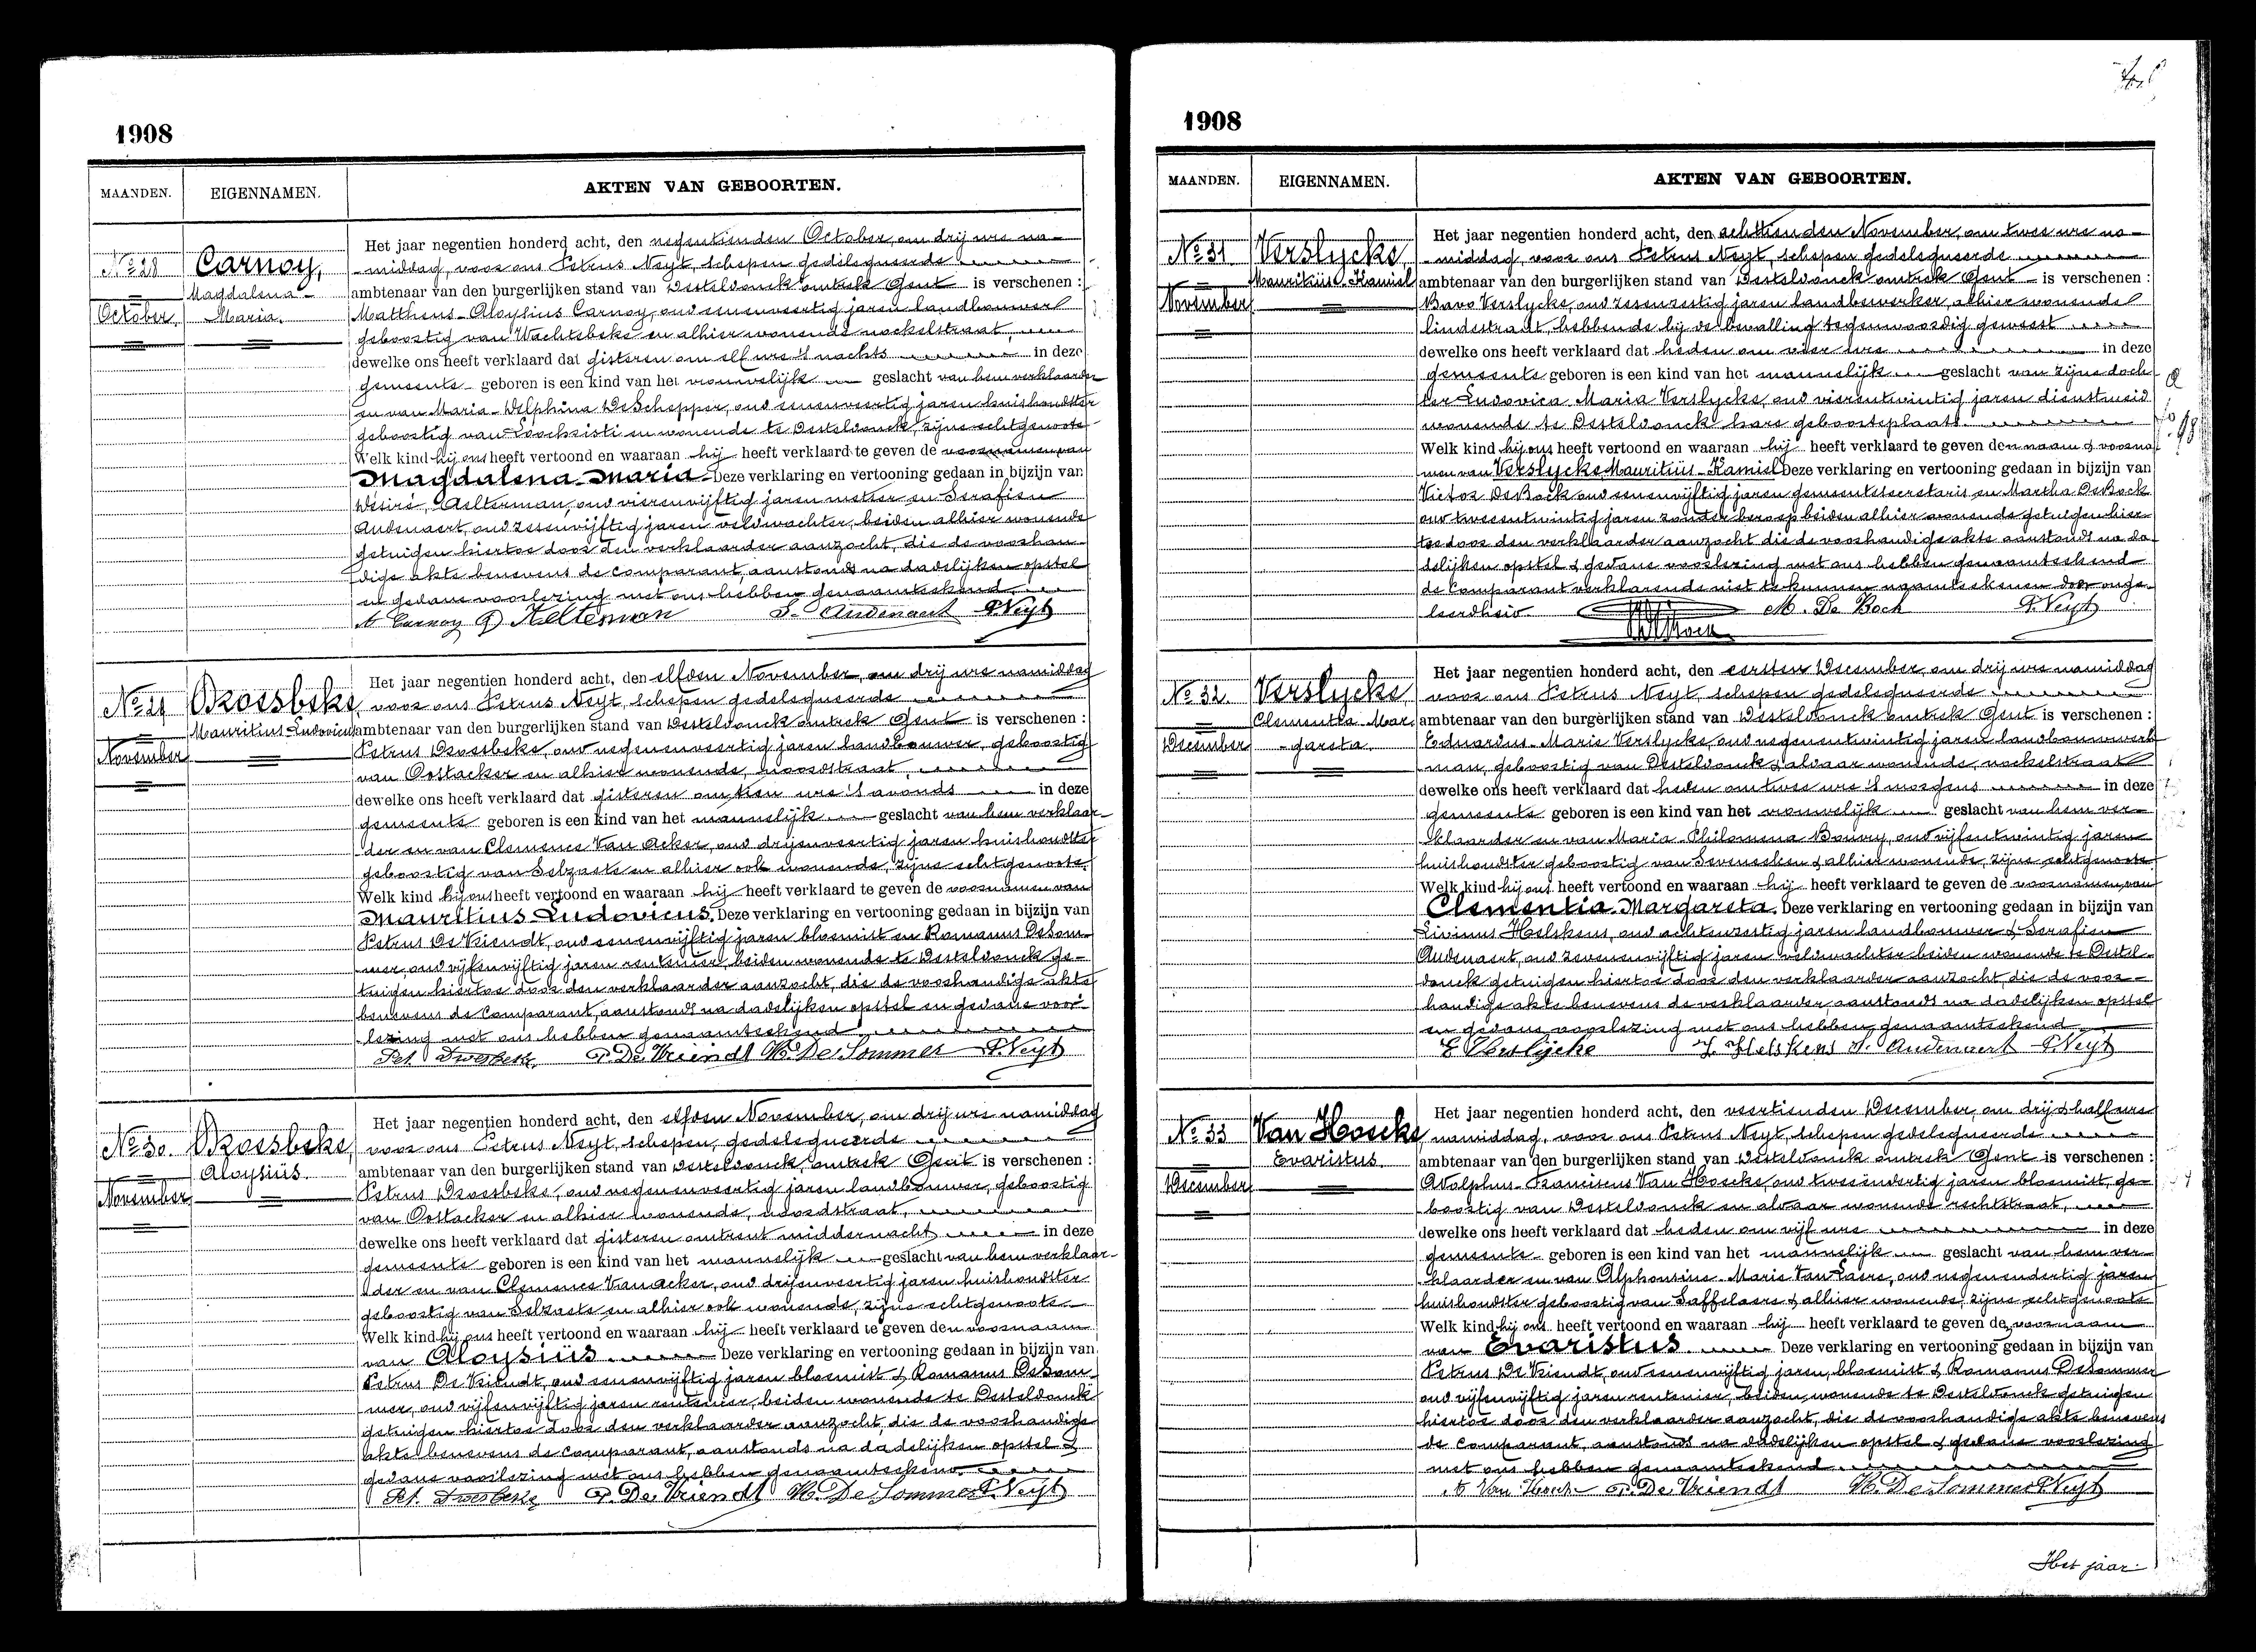 1908
MAANDEN.
EIGENNAMEN.
AKTEN VAN GEBOORTEN.
No 28
October
Carnoy,
Magdalena-
Maria.
Het jaar negentien honderd acht, den negentienden October, om drij ure na-
middag, voor ons Petrus Neyt, schepen gedelegueerde
ambtenaar van den burgerlijken stand van Desteldonck omtrek Gent is verschenen :
Mattheus-Aloysius Carnoy, oud eenenveertig jaren landbouwer
geboortig van Wachtebeke en alhier wonende nockelstraat,
dewelke ons heeft verklaard dat gisteren om elf ure 's nachts in deze
gemeente geboren is een kind van het vrouwelijk geslacht van hem verklaarder
en van Maria-Delphina DeSchepper, oud eenenveertig jaren huishoudster
geboortig van Loochristi en wonende te Desteldonck, zijne echtgenoote
Welk kind hij ons heeft vertoond en waaraan hij heeft verklaard te geven de voornamen van
Magdalena-Maria Deze verklaring en vertooning gedaan in bijzijn van
Desiré Aelterman, oud vierenvijftig jaren metser en Serafien
Audenaert, oud zesenvijftig jaren veldwachter, beiden alhier wonende
getuigen hiertoe door den verklaarder aanzocht, die de voorhan-
dige akte benevens de comparant, aanstonds na dadelijken opstel
en gedane voorlezing met ons hebben genaamteekend.
A Carnoy D Aelterman S. Audenaert P. Neyt
No 29
November
Dzoesbeke
Mauritius Ludovicus
Het jaar negentien honderd acht, den elfden November, om drij ure namiddag
voor ons Petrus Neyt, schepen gedelegueerde
ambtenaar van den burgerlijken stand van Desteldonck omtrek Gent is verschenen :
Petrus Dzoesbeke, oud negenenveertig jaren landbouwer, geboortig
van Oostacker en alhier wonende, noordstraat,
dewelke ons heeft verklaard dat gisteren om tien ure 's avonds in deze
gemeente geboren is een kind van het mannelijk geslacht van hem verklaar-
der en van Clemence Van Acker, oud drijenveertig jaren huishoudster
geboortig van Selzaete en alhier ook wonende, zijne echtgenoote.
Welk kind hij ons heeft vertoond en waaraan hij heeft verklaard te geven de voornamen van
Mauritius Ludovicus. Deze verklaring en vertooning gedaan in bijzijn van
Petrus De Vriendt, oud eenenvijftig jaren bloemist en Romanus DeSom-
mer, oud vijfenvijftig jaren rentenier, beiden wonende te Desteldonck ge-
tuigen hiertoe door den verklaarder aanzocht, die de voorhandige akte
benevens de comparant, aanstonds na dadelijken opstel en gedane voor-
lezing met ons hebben genaamteekend
Pet. P. De Vriendt De Sommer P. Neyt
No 30.
November
Dzoesbeke,
Aloysius.
Het jaar negentien honderd acht, den elfden November, om drij ure namiddag
voor ons Petrus Neyt, schepen, gedelegueerde
ambtenaar van den burgerlijken stand van Desteldonck, omtrek Gent is verschenen :
Petrus Dzoesbeke, oud negenenveertig jaren landbouwer, geboortig
van Oostacker en alhier wonende, noordstraat,
dewelke ons heeft verklaard dat gisteren omtrent middernacht in deze
gemeente geboren is een kind van het mannelijk geslacht van hem verklaar-
der en van Clemence Van Acker, oud drijenveertig jaren huishoudster
geboortig van Selzaete en alhier ook wonende, zijne echtgenoote
Welk kind hij ons heeft vertoond en waaraan hij heeft verklaard te geven den voornaam
van Aloysius. Deze verklaring en vertooning gedaan in bijzijn van
Petrus De Vriendt, oud eenenvijftig jaren bloemist & Romanus DeSom-
mer, oud vijfenvijftig jaren rentenier, beiden wonende te Desteldonck
getuigen hiertoe door den verklaarder aanzocht, die de voorhandige
akte benevens de comparant, aanstonds na dadelijken opstel &
gedane voorlezing met ons hebben genaamteekend.
Pet. P. De Vriendt De Sommer P. Neyt
1908
MAANDEN.
EIGENNAMEN.
AKTEN VAN GEBOORTEN.
No 31
November
Verslycke,
Mauritius-Kamiel
Het jaar negentien honderd acht, den achttienden November, om twee ure na-
middag, voor ons Petrus Neyt, schepen gedelegueerde
ambtenaar van den burgerlijken stand van Desteldonck omtrek Gent is verschenen :
Bavo Verslycke, oud zesenzestig jaren landbewerker, alhier wonende
lindestraat, hebbende bij de bevalling tegenwoordig geweest
dewelke ons heeft verklaard dat heden om vier ure in deze
gemeente geboren is een kind van het mannelijk geslacht van zijne doch-
ter Ludovica Maria Verslycke, oud vierentwintig jaren dienstmeid
wonende te Desteldonck hare geboorteplaats.
Welk kind hij ons heeft vertoond en waaraan hij heeft verklaard te geven den naam & voorna-
men van Verslycke Mauritius-Kamiel Deze verklaring en vertooning gedaan in bijzijn van
Victor DeBock oud eenenvijftig jaren gemeentesecretaris en Martha DeBock
oud tweeentwintig jaren zonder beroep beiden alhier wonende getuigen hier-
toe door den verklaarder aanzocht die de voorhandige akte aanstonds na da-
delijken opstel & gedane voorlezing met ons hebben genaamteekend
de comparant verklarende niet te kunnen naamteekenen door onge-
leerdheid M. De Bock P. Neyt
No 32.
December
Verslycke,
Clementia Mar-
gareta.
Het jaar negentien honderd acht, den eersten December, om drij ure namiddag
voor ons Petrus Neyt, schepen gedelegueerde
ambtenaar van den burgerlijken stand van Desteldonck omtrek Gent is verschenen :
Eduardus-Marie Verslycke, oud negenentwintig jaren landbouwwerk-
man, geboortig van Desteldonck & aldaar wonende, nockelstraat
dewelke ons heeft verklaard dat heden om twee ure 's morgens in deze
gemeente geboren is een kind van het vrouwelijk geslacht van hem ver-
klaarder en van Maria-Philomena Bouvry, oud vijfentwintig jaren
huishoudster geboortig van Seveneeken & alhier wonende, zijne echtgenoote
Welk kind hij ons heeft vertoond en waaraan hij heeft verklaard te geven de voornamen van
Clementia Margareta. Deze verklaring en vertooning gedaan in bijzijn van
Livinus Helskens, oud achtenzestig jaren landbouwer & Serafien
Audenaert, oud zevenenvijftig jaren veldwachter beiden wonende te Destel-
donck getuigen hiertoe door den verklaarder aanzocht, die de voor-
handige akte benevens de verklaarder aanstonds na dadelijken opstel
en gedane voorlezing met ons hebben genaamteekend
E Verslycke L. Helskens S. Audenaert P. Neyt
No 33
December
Van Hoecke,
Evaristus.
Het jaar negentien honderd acht, den veertienden December, om drij & half ure
namiddag, voor ons Petrus Neyt, schepen gedelegueerde
ambtenaar van den burgerlijken stand van Desteldonck omtrek Gent is verschenen :
Adolphus-Franciscus Van Hoecke, oud tweeendertig jaren bloemist, ge-
boortig van Desteldonck en aldaar wonende rechtstraat,
dewelke ons heeft verklaard dat heden om vijf ure in deze
gemeente geboren is een kind van het mannelijk geslacht van hem ver-
klaarder en van Alphonsine-Marie Van Laere, oud negenendertig jaren
huishoudster geboortig van Saffelaere & alhier wonende, zijne echtgenoote
Welk kind hij ons heeft vertoond en waaraan hij heeft verklaard te geven de voornaam
van Evaristus. Deze verklaring en vertooning gedaan in bijzijn van
Petrus De Vriendt, oud eenenvijftig jaren, bloemist & Romanus DeSommer
oud vijfenvijftig jaren rentenier, beiden wonende te Desteldonck getuigen
hiertoe door den verklaarder aanzocht, die de voorhandige akte benevens
de comparant, aanstonds na dadelijken opstel & gedane voorlezing
met ons hebben genaamteekend.
A Van Hoecke P. De Vriendt De Sommer P. Neyt
Het jaar